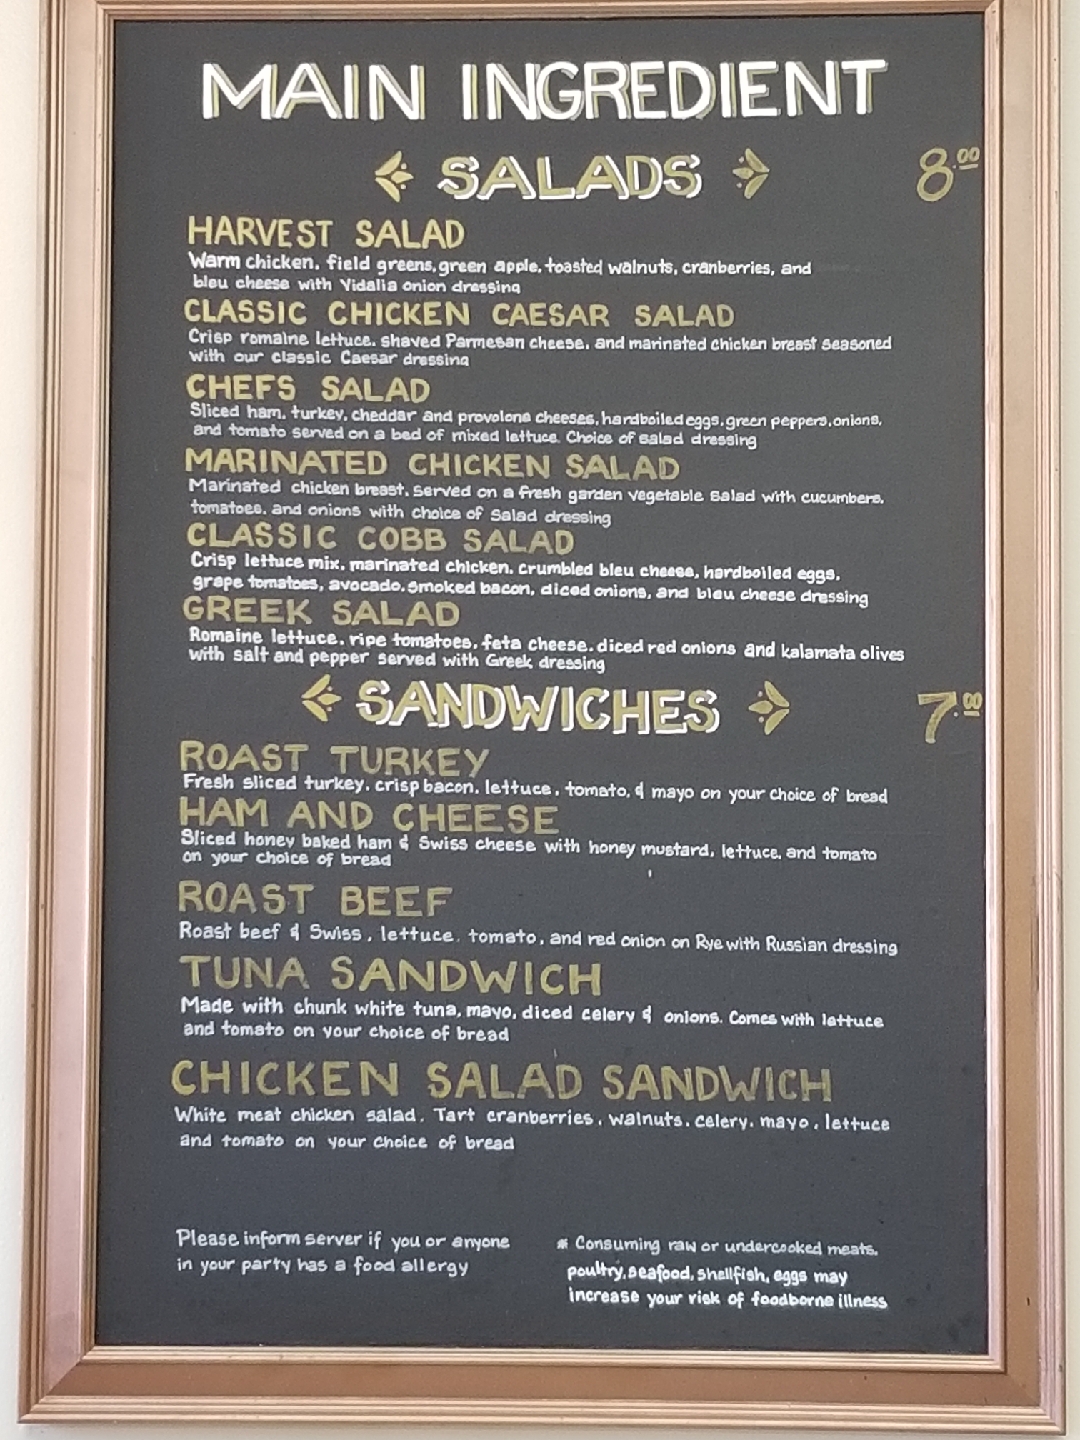 MAIN INGREDIENT
SALADS 8.00
HARVEST SALAD
Warm chicken, field greens, green apple, toasted walnuts, cranberries, and
bleu cheese with Vidalia onion dressing
CLASSIC CHICKEN CAESAR SALAD
Crisp romaine lettuce, shaved Parmesan cheese, and marinated chicken breast seasoned
with our classic Caesar dressing
CHEFS SALAD
Sliced ham, turkey, cheddar and provolone cheeses, hardboiled eggs, green peppers, onions,
and tomato served on a bed of mixed lettuce. Choice of salad dressing
MARINATED CHICKEN SALAD
Marinated chicken breast, served on a fresh garden vegetable salad with cucumbers,
tomatoes, and onions with choice of salad dressing
CLASSIC COBB SALAD
Crisp lettuce mix, marinated chicken, crumbled bleu cheese, hardboiled eggs,
grape tomatoes, avocado, smoked bacon, diced onions, and bleu cheese dressing
GREEK SALAD
Romaine lettuce, ripe tomatoes, feta cheese, diced red onions and kalamata olives
with salt and pepper served with Greek dressing
SANDWICHES 7.00
ROAST TURKEY
Fresh sliced turkey, crisp bacon, lettuce, tomato, & mayo on your choice of bread
HAM AND CHEESE
Sliced honey baked ham & Swiss cheese with honey mustard, lettuce, and tomato
on your choice of bread
ROAST BEEF
Roast beef & Swiss, lettuce, tomato, and red onion on Rye with Russian dressing
TUNA SANDWICH
Made with chunk white tuna, mayo, diced celery & onions. Comes with lettuce
and tomato on your choice of bread
CHICKEN SALAD SANDWICH
White meat chicken salad, Tart cranberries, walnuts, celery, mayo, lettuce
and tomato on your choice of bread
Please inform server if you or anyone
in your party has a food allergy
* Consuming raw or undercooked meats,
poultry, seafood, shellfish, eggs may
increase your risk of foodborne illness